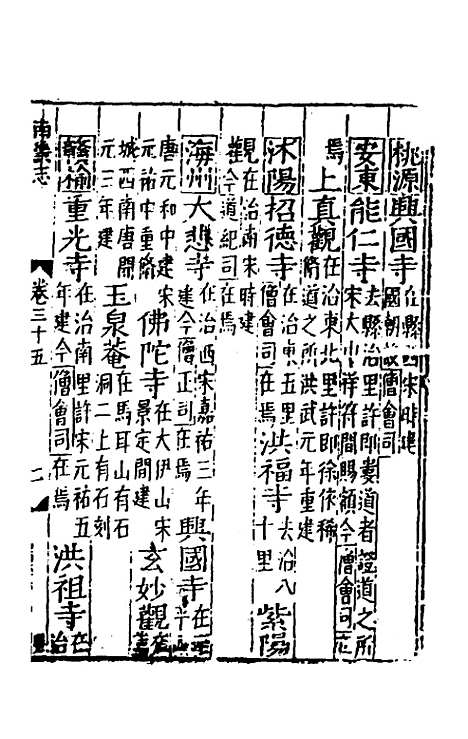 桃源興國寺在縣西宋時建國朝設僧會司
安東能仁寺去縣治里許即婁道者證道之所宋大中祥符間賜額今僧會司在
焉上真觀在治東北里許即徐依稀脩道之所洪武元年重建
沭陽招德寺在治東五里僧會司在焉洪福寺去治八十里紫陽
觀在治南宋時建今道紀司在焉
海州大悲寺在治西宋嘉祐三年建今僧正司在焉興國寺在
唐元和中建宋元祐中重脩佛陀寺在大伊山宋景定間建玄妙觀在
城西南唐開元三年建玉泉菴在馬耳山有石洞二上有石刻
贛榆重光寺在治南里許宋元祐五年建今僧會司在焉洪祖寺在治
南畿志
卷三十五
二